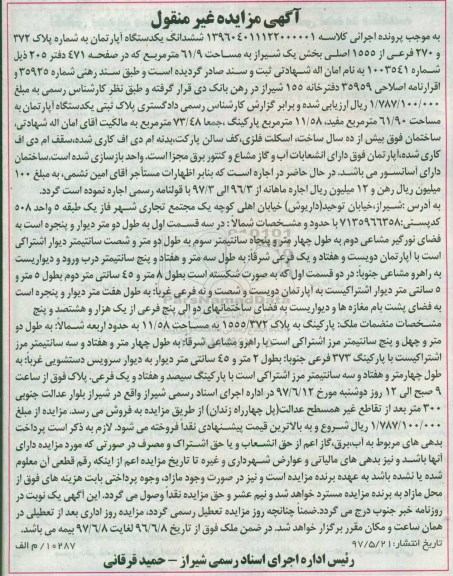 آگهی مزایده غیر منقول
به موجب پرونده اجرائی کلاسه ۱۳۹۶۰۴۰۱۱۱۲۲۰۰۰۰۰۱ ششدانگ یکدستگاه آپارتمان به شماره پلاک ۳۷۲
و ۲۷۰ فرعی از ۱۵۵۵ اصلی بخش یک شیراز به مساحت ۶۱/۹ مترمربع که در صفحه ۴۷۱ دفتر ۲۰۵ ذیل
شماره ۱۰۰۳۵۴۱ به نام امان اله شهادتی ثبت و سند صادر گردیده است و طبق سند رهنی شماره ۳۵۹۲۵ و
اقرارنامه اصلاحی ۳۵۹۵۹ دفترخانه ۱۵۵ شیراز در رهن بانک دی قرار گرفته و طبق نظر کارشناس رسمی به مبلغ
۱/۷۸۷/۱۰۰/۰۰۰ ریال ارزیابی شده و برابر گزارش کارشناس رسمی دادگستری پلاک ثبتی یکدستگاه آپارتمان به
مساحت ۶۱/۹۰ مترمربع مفید، ۱۱/۵۸ مترمربع پارکینگ ،جمعا ۷۳/۴۸ مترمربع به مالکیت آقای امان اله شهادتی،
ساختمان فوق بیش از ده سال ساخت، اسکلت فلزی،کف سالن پارکت،بدنه ام دی اف کاری شده،سقف ام دی اف
کاری شده،آپارتمان فوق دارای انشعابات آب و گاز مشاع و کنتور برق مجزا است. واحد بازسازی شده است.ساختمان
دارای آسانسور می باشد. در حال حاضر در اجاره است که بنابر اظهارات مستأجر آقای امین نشمی، به مبلغ ۱۰۰
میلیون ریال رهن و ۱۲ میلیون ریال اجاره ماهانه از ۹۶/۳ الی ۹۷/۳ با قولنامه رسمی اجاره نموده است گردد.
به آدرس :شیراز،خیابان توحید(داریوش) خیابان اهلی کوچه یک مجتمع تجاری شهر فاز یک طبقه ۵ واحد ۵۰۸
کدپستی:۷۱۳۵۹۶۶۳۵۸ با حدود و مشخصات شمالا: در سه قسمت اول به طول دو متر دیوار و پنجره است به
فضای نورگیر مشاعی دوم به طول چهار متر و پنجاه سانتیمتر سوم به طول دو متر و شصت سانتیمتر دیوار اشتراکی
است با آپارتمان دویست و هفتاد و یک فرعی شرقا: به طول سه متر و هفتاد و پنج سانتیمتر درب ورود و دیواریست
به راهرو مشاعی جنوبا: در دو قسمت اول که به صورت شکسته است بطول ۸ متر و ۴۵ سانتی متر دوم بطول ۵ متر و
۵ سانتی متر دیوار اشتراکیست به آپارتمان دویست و شصت و نه فرعی غربا: به طول هفت متر دیوار و پنجره است
به فضای پشت بام مغازه ها و دیواریست به فضای ساختمانهای دو الی پنج فرعی از یک هزار و هشتصد و پنج
مشخصات منضمات ملک: پارکینگ به پلاک ۱۵۵۵/۳۷۲ به مساحت ۱۱/۵۸ به حدود اربعه شمالا: به طول دو
متر و چهل و پنج سانتیمتر مرز اشتراکی است با راهرو مشاعی شرقا: به طول چهار متر و هفتاد و سه سانتیمتر مرز
اشتراکیست با پارکینگ ۳۷۳ فرعی جنوبا: بطول ۲ متر و ۴۵ سانتی متر دیوار به دیوار سرویس دستشویی غربا: به
طول چهارمتر و هفتاد و سه سانتیمتر مرز اشتراکی است با پارکینگ سیصد و هفتاد و یک فرعی، پلاک فوق از ساعت
۹ صبح الی ۱۲ روز دوشنبه مورخ ۹۷/۶/۱۲ در اداره اجرای اسناد رسمی شیراز واقع در شیراز بلوار عدالت جنوبی
۳۰۰ متر بعد از تقاطع غیر همسطح عدالت(پل چهارراه زندان) از طریق مزایده به فروش می رسد. مزایده از مبلغ
۱/۷۸۷/۱۰۰/۰۰۰ ریال شروع و به بالاترین قیمت پیشنهادی نقدا فروخته می شود. لازم به ذکر است پرداخت
بدهی های مربوط به آب،برق،گاز اعم از حق انشعاب و یا حق اشتراک و مصرف در صورتی که مورد مزایده دارای
آنها باشد و نیز بدهی های مالیاتی و عوارض شهرداری و غیره تا تاریخ مزایده اعم از اینکه رقم قطعی آن معلوم
شده یا نشده باشد به عهده برنده مزایده است و نیز در صورت وجود مازاد، وجوه پرداختی بابت هزینه های فوق از
محل مازاد به برنده مزایده مسترد خواهد شد و نیم عشر و حق مزایده نقدا وصول می گردد. این آگهی یک نوبت در
روزنامه خبر جنوب درج می گردد.ضمنا چنانچه روز مزایده تعطیل رسمی گردد، مزایده روز اداری بعد از تعطیلی در
همان ساعت و مکان مقرر برگزار خواهد شد. در ضمن ملک فوق از تاریخ ۹۶/۶/۸ لغایت ۹۷/۶/۸ بیمه می باشد.
تاریخ انتشار: ۹۷/۵/۲۱
۱۰۲۸۷/ م الف
رئیس اداره اجرای اسناد رسمی شیراز - حمید قرقانی